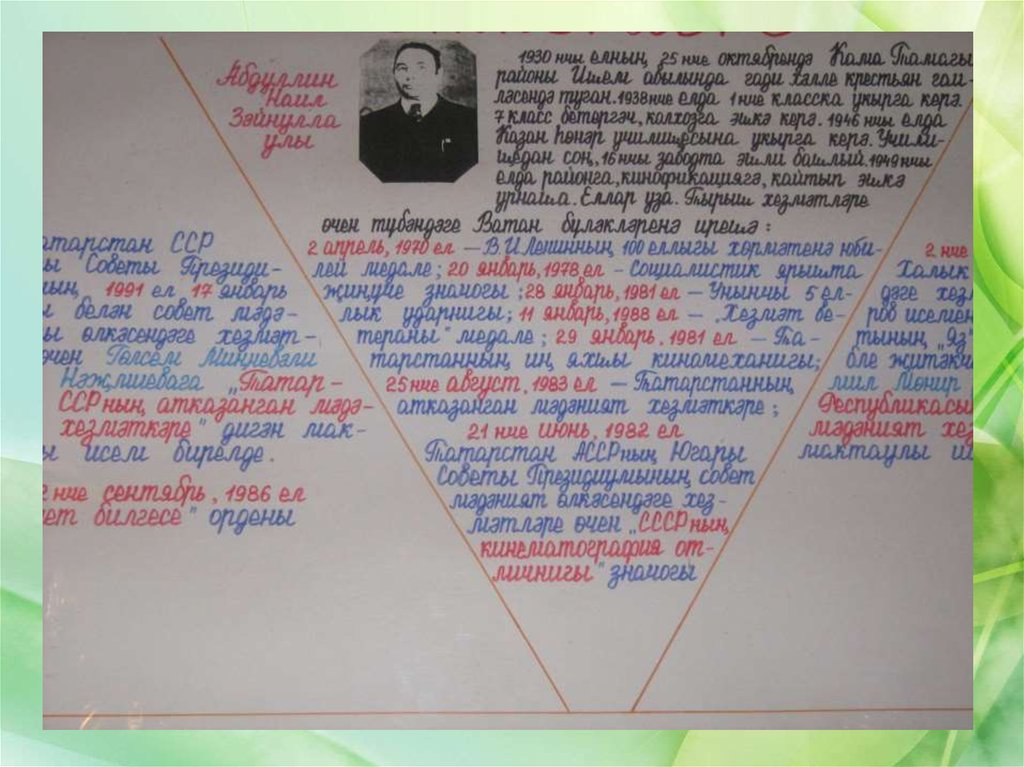 Абдуллин
Наил
Зәйнулла
улы
1930 нчы елның 25 нче октябрендә Кама Тамагы
районы Ишем авылында гади хәлле крестьян гаи-
ләсендә туган. 1938 нче елда 1 нче класска укырга керә.
7 класс бетергәч, колхозга эшкә керә. 1946 нчы елда
Казан һөнәр училищесына укырга керә. Учили-
щедан соң, 16 нчы заводта эшли башлый. 1949 нчы
елда районга, кинофикациягә, кайтып эшкә
урнаша. Еллар уза. Тырыш хезмәтләре
өчен түбәндәге Ватан бүләкләренә ирешә:
2 апрель, 1970 ел — В.И Ленинның 100 еллыгы хөрмәтенә юби-
лей медале; 20 январь, 1978 ел – Социалистик ярышта
җиңүче знамогы; 28 январь, 1981 ел — Унынчы 5 ел-
лык ударнигы; 11 январь, 1988 ел — „Хезмәт ве-
тераны" медале; 29 январь, 1981 ел — Та-
тарстанның иң яхшы киномеханигы;
25 нче август, 1983 ел — Татарстанның
атказанган мәдәният хезмәткәре;
21 нче июнь, 1982 ел
Татарстан АССРның Югары
Советы Президиумының совет
мәдәният өлкәсендәге хез-
мәтләре өчен „СССРның
кинематография от-
личнигы" знамогы
атарстан ССР
ы Советы Президи-
ның 1991 ел 17 январь
белән совет мәдә-
ы өлкәсендәге хезмәт-
өчен Гөлсем Миңневәли
Нәҗмиевага „Татар-
ССРның атказанган мәдә-
хезмәткәре" дигән мак-
ы исем бирелде.
2 нче сентябрь, 1986 ел
ет билгесе" ордены
2 нче
Халык
дәге хез
ров исемен
тының „Яз"
әле җитәкч
мил Монир
Республикасы
мәдәният хез
мактаулы и